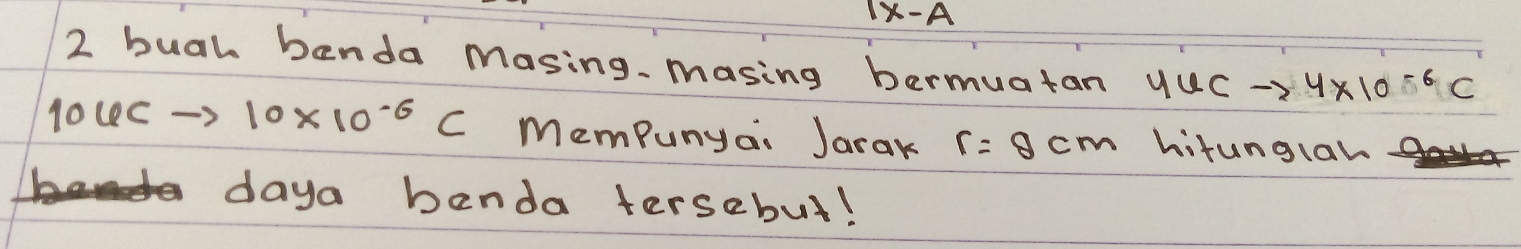 IX-A
2 buah benda masing-masing bermuatan 4 uc -> 4x10⁻⁶ C
10 uc -> 10x10⁻⁶ C mempunyai Jarak r = 8 cm hitunglah
daya benda tersebut!